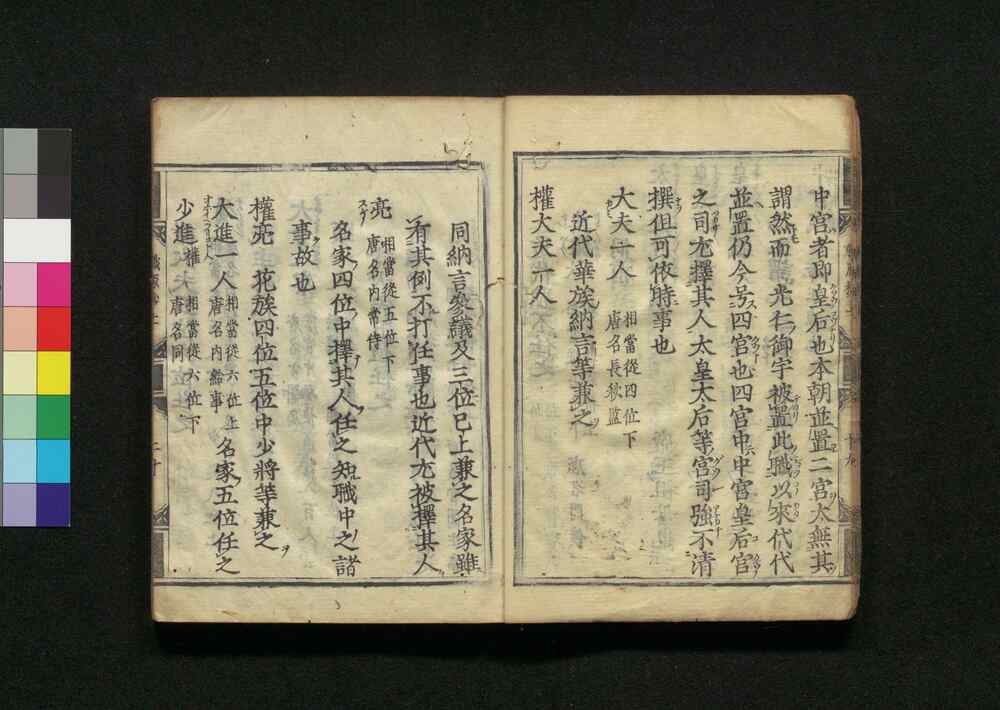 中宮者即皇后也本朝並置二宮太無其
謂然而光仁御宇被置此職以來代代
並置仍今号四宮也四宮中中宮皇后宮
之司尤撰其人太皇太后等宮司強不清
撰但可依時事也
大夫一人 相當從四位下 唐名長秋監
近代華族納言等兼之
權大夫一人
同納言參議及三位已上兼之名家雖
有其例不打任事也近代尤被擇其人
亮 相當從五位下 唐名内常侍
名家四位中擇其人任之知職中之諸
事故也
權亮 花族四位五位中少將等兼之
大進一人 相當從六位上 唐名内給事 名家五位任之
少進 權 相當從六位下 唐名同